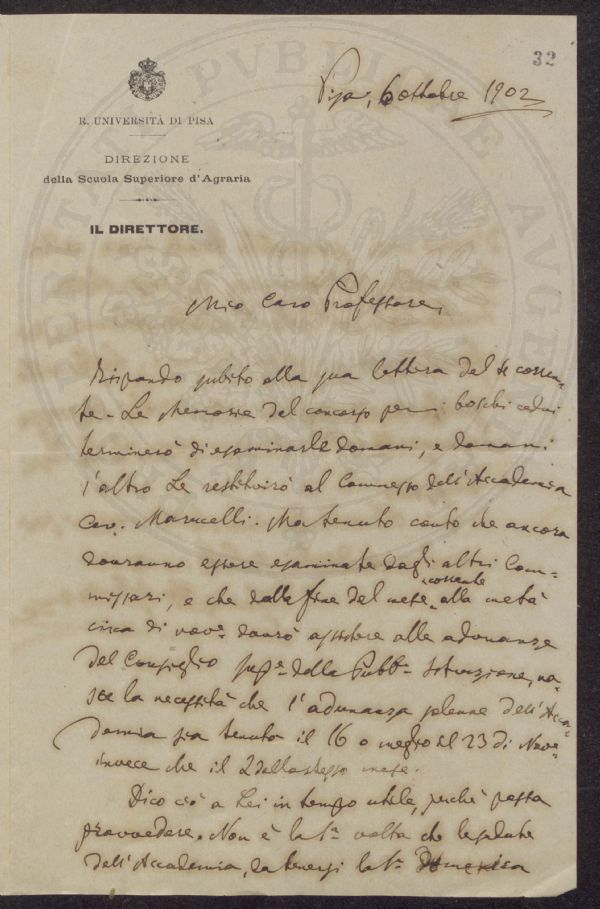 32
Pisa, 6 ottobre 1902
R. UNIVERSITÀ DI PISA
DIREZIONE
della Scuola Superiore d'Agraria
IL DIRETTORE.
Mio caro Professore,
Rispondo subito alla sua lettera del 4 corren-
te - Le Memorie del concorso per i boschi cedui
terminerò di esaminarle domani, e domani
l'altro Le restituirò al Commesso dell'Accademia
Cav. Marucelli. Ma tenuto conto che ancora
dovranno essere esaminate dagli altri Com-
missari, e che dalla fine del mese corrente alla metà
circa di nov.e dovrò assistere alle adunanze
del Consiglio sup.e della Pubb.a Istruzione, na-
sce la necessità che l'adunanza solenne dell'Acca-
demia sia tenuta il 16 o meglio il 23 di Nov.e
invece che il 2 dello stesso mese.
Dico ciò a Lei in tempo utile, perchè possa
provvedere. Non è la 1a volta che le sedute
dell'Accademia, da tenersi la 1a Domenica